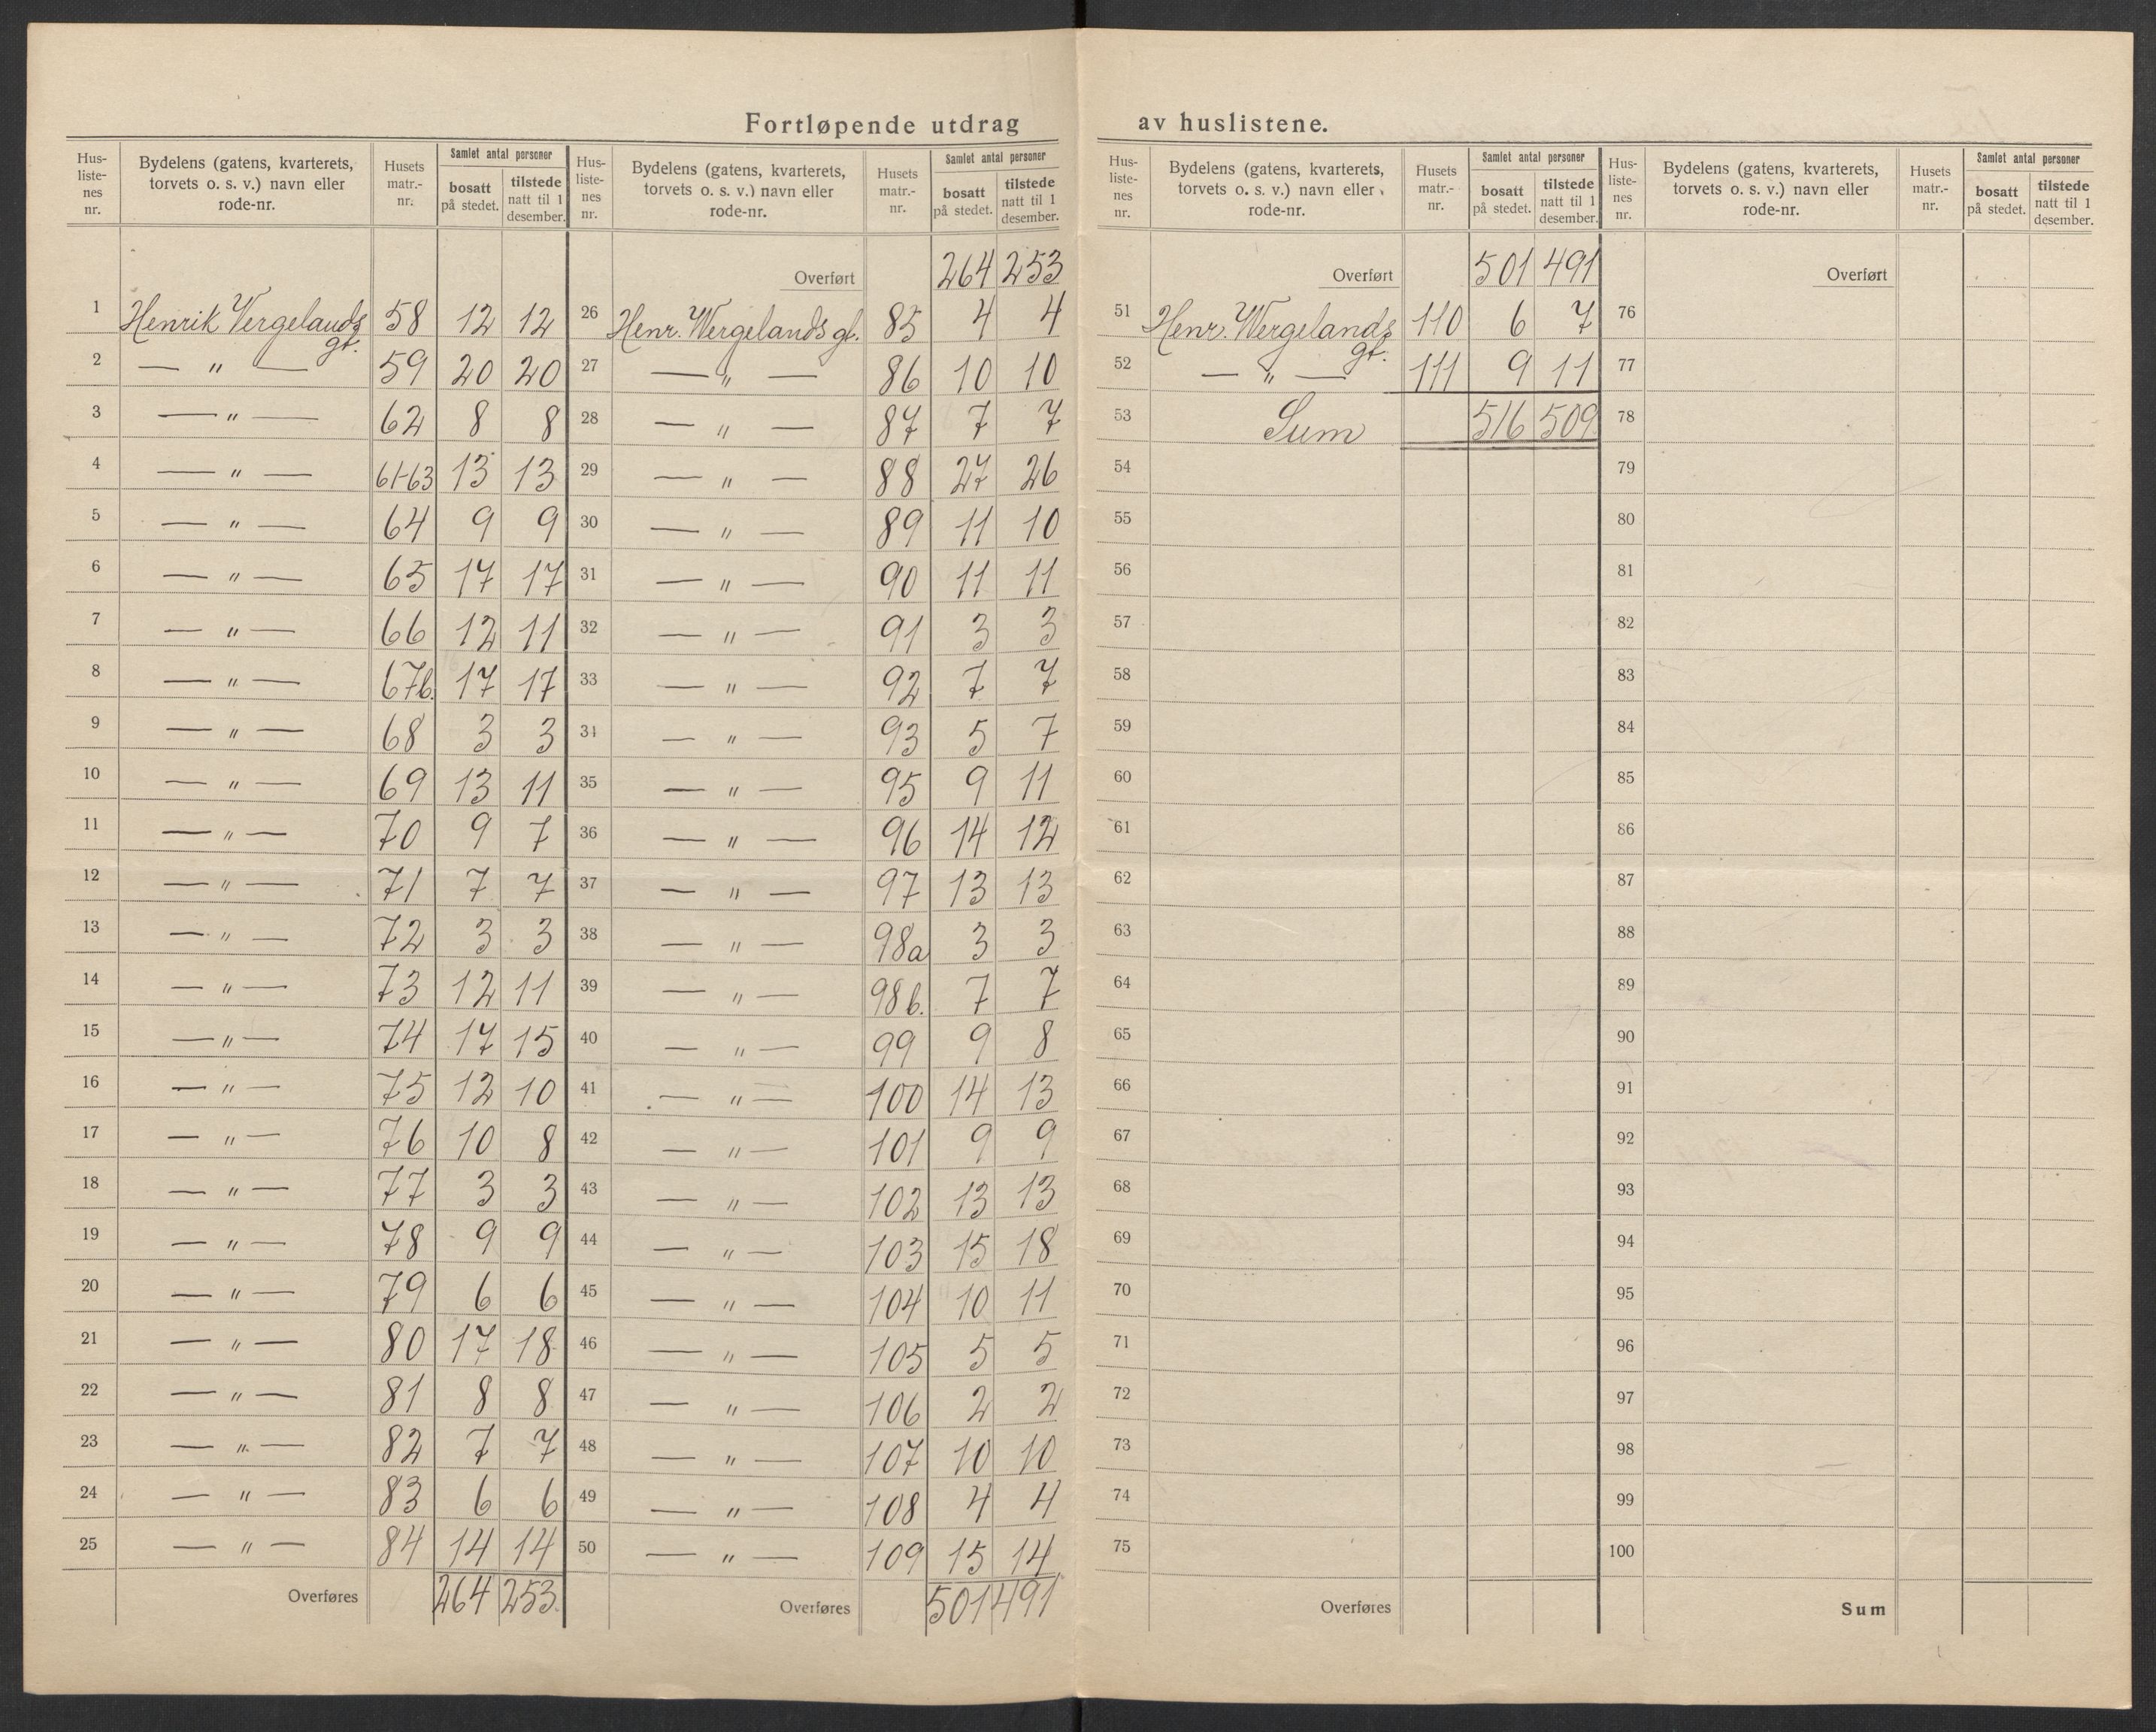 Fortløpende utdrag av huslistene.
Hus-listenes nr. | Bydelens (gatens, kvarterets, torvets o. s. v.) navn eller rode-nr. | Husets matr.-nr. | Samlet antal personer bosatt på stedet. | tilstede natt til 1 desember.
1 Henrik Vergelands gt. 58 12 12
2 — " — 59 20 20
3 — " — 62 8 8
4 — " — 61-63 13 13
5 — " — 64 9 9
6 — " — 65 17 17
7 — " — 66 12 11
8 — " — 67b. 17 17
9 — " — 68 3 3
10 — " — 69 13 11
11 — " — 70 9 7
12 — " — 71 7 7
13 — " — 72 3 3
14 — " — 73 12 11
15 — " — 74 17 15
16 — " — 75 12 10
17 — " — 76 10 8
18 — " — 77 3 3
19 — " — 78 9 9
20 — " — 79 6 6
21 — " — 80 17 18
22 — " — 81 8 8
23 — " — 82 7 7
24 — " — 83 6 6
25 — " — 84 14 14
Overføres 264 253
Hus-listenes nr. | Bydelens (gatens, kvarterets, torvets o. s. v.) navn eller rode-nr. | Husets matr.-nr. | Samlet antal personer bosatt på stedet. | tilstede natt til 1 desember.
Overført 264 253
26 Henr. Wergelands gt. 85 4 4
27 — " — 86 10 10
28 — " — 87 7 7
29 — " — 88 27 26
30 — " — 89 11 10
31 — " — 90 11 11
32 — " — 91 3 3
33 — " — 92 7 7
34 — " — 93 5 7
35 — " — 95 9 11
36 — " — 96 14 12
37 — " — 97 13 13
38 — " — 98a 3 3
39 — " — 98b. 7 7
40 — " — 99 9 8
41 — " — 100 14 13
42 — " — 101 9 9
43 — " — 102 13 13
44 — " — 103 15 18
45 — " — 104 10 11
46 — " — 105 5 5
47 — " — 106 2 2
48 — " — 107 10 10
49 — " — 108 4 4
50 — " — 109 15 14
Overføres 501 491
Hus-listenes nr. | Bydelens (gatens, kvarterets, torvets o. s. v.) navn eller rode-nr. | Husets matr.-nr. | Samlet antal personer bosatt på stedet. | tilstede natt til 1 desember.
Overført 501 491
51 Henr. Wergelands gt. 110 6 7
52 — " — 111 9 11
53 Sum 516 509
54
55
56
57
58
59
60
61
62
63
64
65
66
67
68
69
70
71
72
73
74
75
Overføres
Hus-listenes nr. | Bydelens (gatens, kvarterets, torvets o. s. v.) navn eller rode-nr. | Husets matr.-nr. | Samlet antal personer bosatt på stedet. | tilstede natt til 1 desember.
Overført
76
77
78
79
80
81
82
83
84
85
86
87
88
89
90
91
92
93
94
95
96
97
98
99
100
Sum